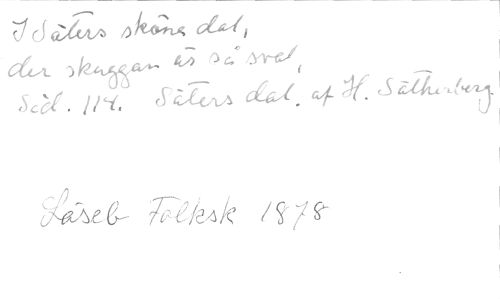 I Säters sköna dal,
der skuggan är så sval,
Sid. 114. Säters dal. af H. Sätherberg
Läseb Folksk 1878